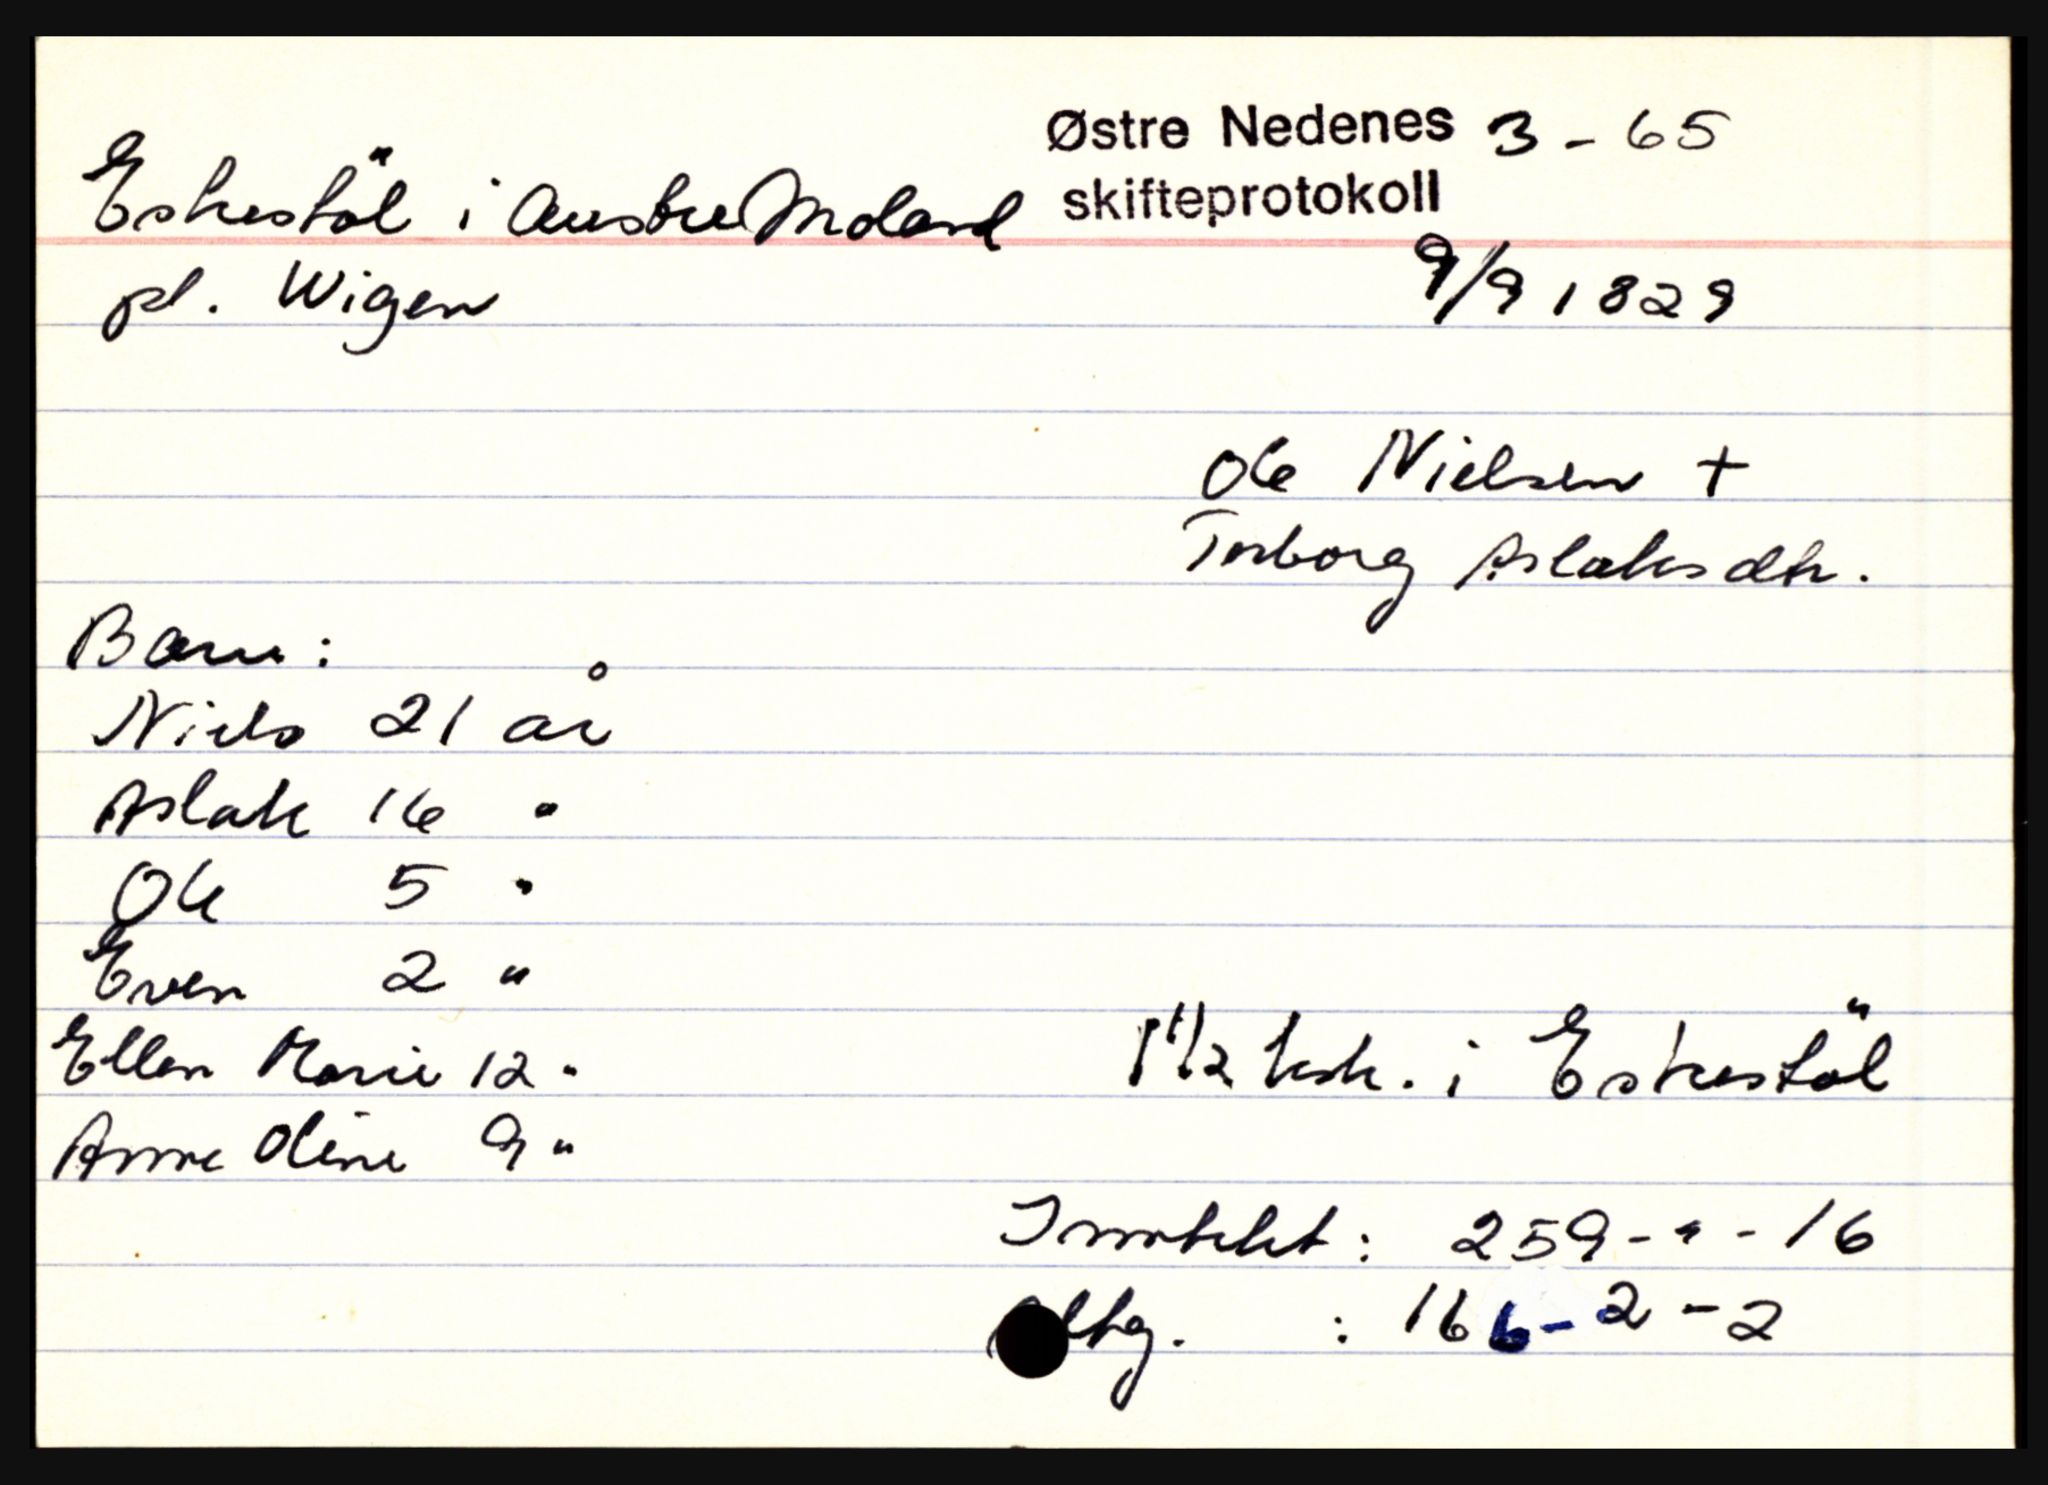 Østre Nedenes 3 - 65
skifteprotokoll
Eskestöl i Austre Moland
pl. Wigen
9/9 1829
Ole Nielsen +
Torborg Aslaksdtr.
Barn:
Niels 21 år
Aslak 16 "
Ole 5 "
Even 2 "
Ellen Marie 12 "
Anne Oline 9 "
1 1/2 ksk. i Eskestöl
Inntekt: 259 - " - 16
Utg. : 166 - 2 - 2